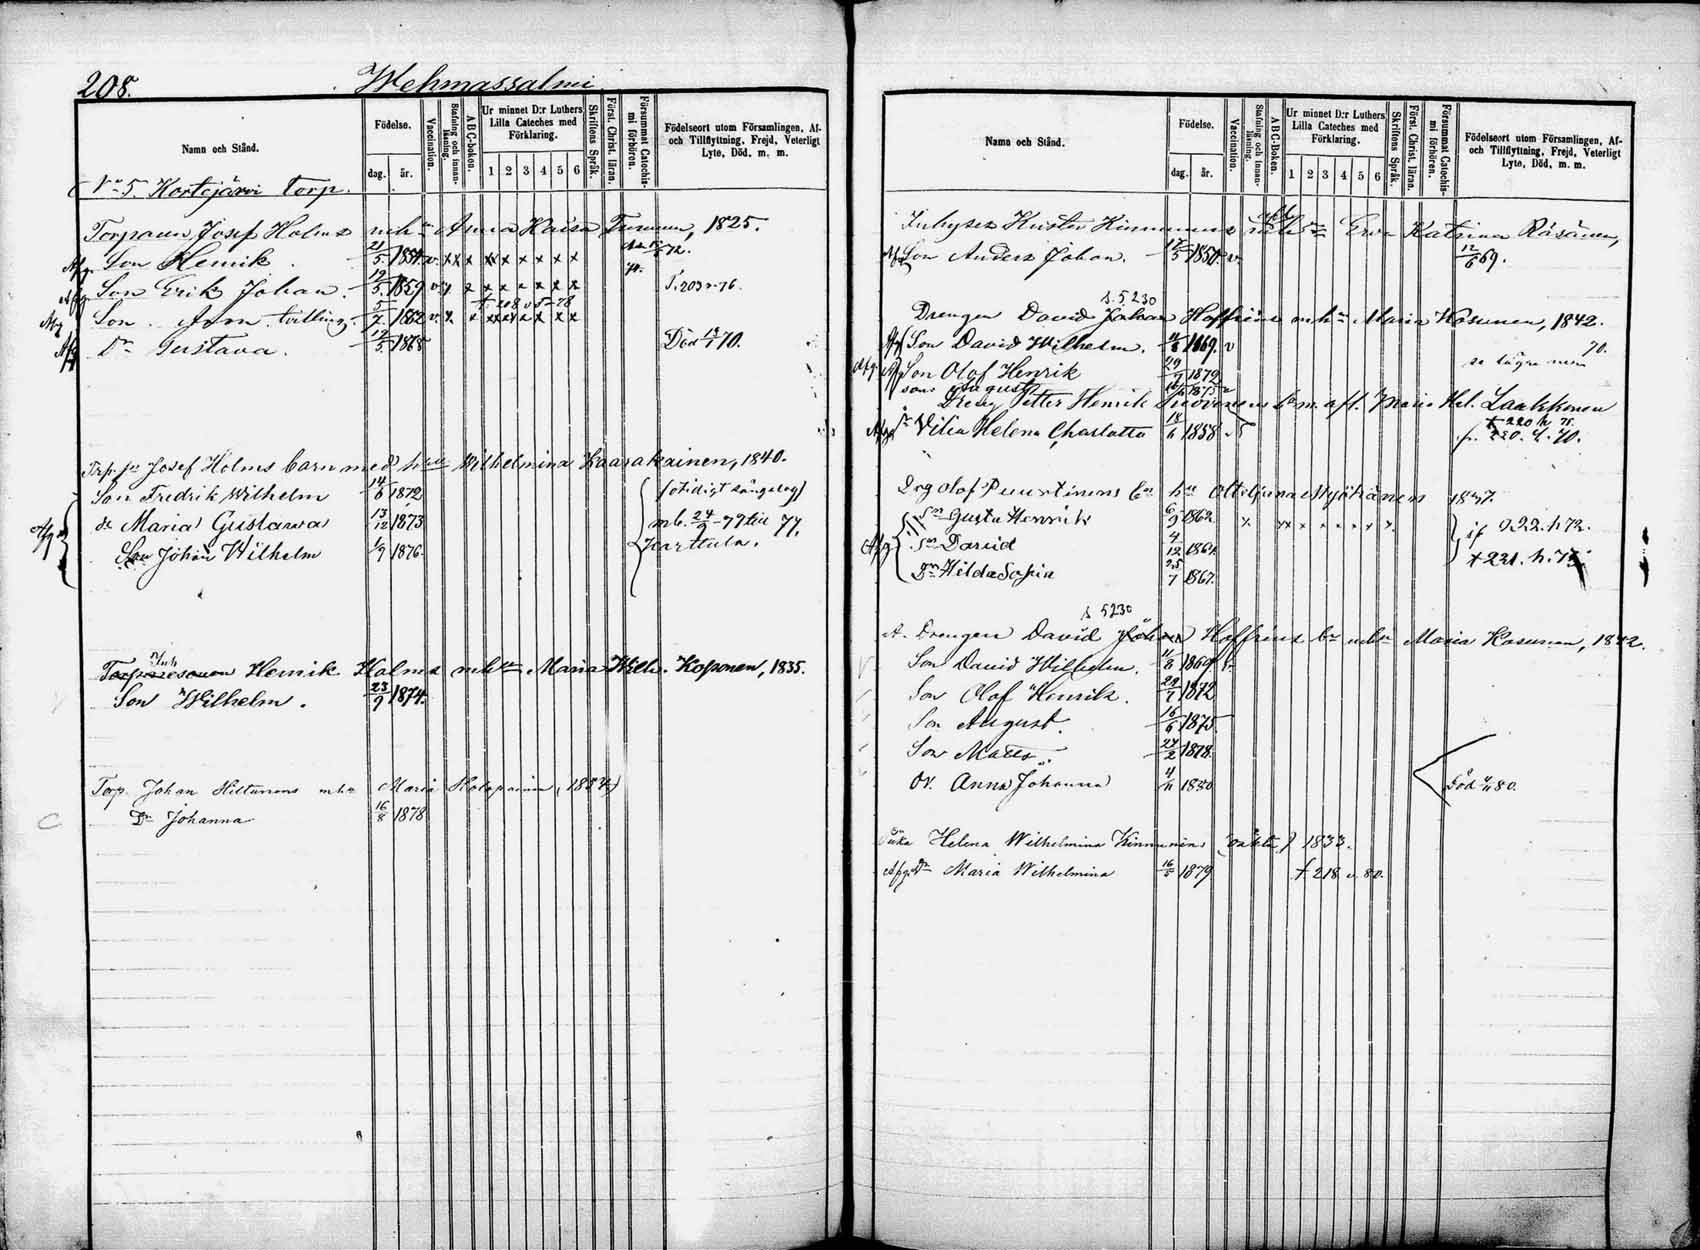 208.
Wehmassalmi
Namn och Stånd.
Födelse.
dag.
år.
Vaccination.
Stafning och innanläsning.
ABC-boken.
Ur minnet D:r Luthers Lilla Cateches med Förklaring.
1 2 3 4 5 6
Skriftens Språk.
Först. Christ. läran.
Försummat Catechismi förhören.
Födelseort utom Församlingen, Af- och Tillflyttning, Frejd, Veterligt Lyte, Död, m. m.
No 5. Kortejärvi torp.
Torparen Josef Holms mhu Anna Kaisa Turunen, 1825.
Afg. Son Henrik. 21/5 1854. v. x x xx x x x x x 72.
Afg. Son Erik Johan. 19/5 1859 v. x x x x x x x x
+ 208 v 5-78
Afg Son Aron tvilling. 5/7 1862 v. x x xx x x x x x
Afg Dr Gustava. 17/5 1865 Död 70.
Torp. sn Josef Holms barn med hu Wilhelmina Kaarakainen, 1840.
Son Fredrik Wilhelm 14/6 1872 (otidigt sängelag)
Afg dr Maria Gustawa 13/12 1873 mb. 24/9 - 77 till
Son Johan Wilhelm 1/9 1876. Karttula. 77.
Inh
Torparesonen Henrik Holms mhu Maria Wilh. Koponen, 1835.
Son Wilhelm. 23/9 1874.
Torp. Johan Hiltunens mhu Maria Holopainen, 1834)
Dr Johanna 16/8 1878
Namn och Stånd.
Födelse.
dag.
år.
Vaccination.
Stafning och innanläsning.
ABC-Boken.
Ur minnet D:r Luthers Lilla Cateches med Förklaring.
1 2 3 4 5 6
Skriftens Språk.
Först. Christ. läran.
Försummat Catechismi förhören.
Födelseort utom Församlingen, Af- och Tillflyttning, Frejd, Veterligt Lyte, Död, m. m.
Inhyses Krister Kinnunens mhu Eva Katrina Räsänen,
Afg Son Anders Johan. 17/5 1850 v. 12/6 69.
s. 5. 230
Drengen David Johan Hoffréns mhu Maria Kosunen, 1842.
Afg Son David Wilhelm. 11/8 1869. v 70.
Afg Son Olof Henrik 29/7 1872 se lägre ner
son August 16/6 1875
Dreng Petter Henrik b. m. afl. Maria Hel. Laakkonen
+ 220 h
Afg Dr Vilia Helena Charlotta 18/6 1858 fr. 220. 4. 70.
Drg Olof Puurtinens hu Ottiljana 1837.
Sn Gusta Henrik 6/9 1862 x xx x x x x x x if 022. h 72.
Afg Sn David 4/12 1864 + 221. h. 73
Dr Hilda Sofia 25/7 1867.
s 5230
A. Drengen David Johan Hoffréns bn mhu Maria Kosunen, 1842.
Son David Wilhelm. 11/8 1869 v.
Son Olof Henrik. 29/7 1872
Son August. 16/6 1875
Son Matts. 27/2 1878.
Dr. Anna Johanna 4/4 1880 Död 80.
Enka Helena Wilhelmina Kinnunen (oäkta) 1833.
Afg Dr Maria Wilhelmina 16/5 1879 + 218 v. 80.